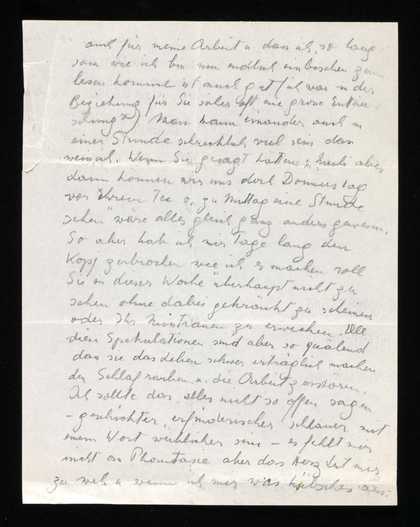 auch für meine Arbeit u dass ich, so lang
wie ich bin nun endlich ein bischen zum
lesen komme ist auch gut (ich war in der
Beziehung für Sie sicher oft eine grosse Enttäu-
schung) Man kann einander auch in
einer Stunde schrecklich viel sein dan
wenn Sie gesagt hätten heute aber
dann können wir uns doch Donnerstag
vor Ihrem Tee o. zu Mittag eine Stunde
sehen" wäre alles gleich ganz anders gewesen.
So aber hab ich mir Tage lang den
Kopf zerbrochen wie ich es machen soll
Sie in dieser Woche überhaupt nicht zu
sehen ohne dabei gekränkt zu scheinen
oder Ihr Misstrauen zu erwecken. All
diese Spekulationen sind aber so quälend
dass sie das Leben schwer erträglich machen
den Schlaf rauben u. die Arbeit zerstören.
Ich sollte das alles nicht so offen sagen
– geschickter, erfinderischer, schlauer mit
einem Wort weiblicher sein – es fehlt mir
nicht an Phantasie aber das Herz tut mir
zu weh u wenn ich mir was hübsches aus-